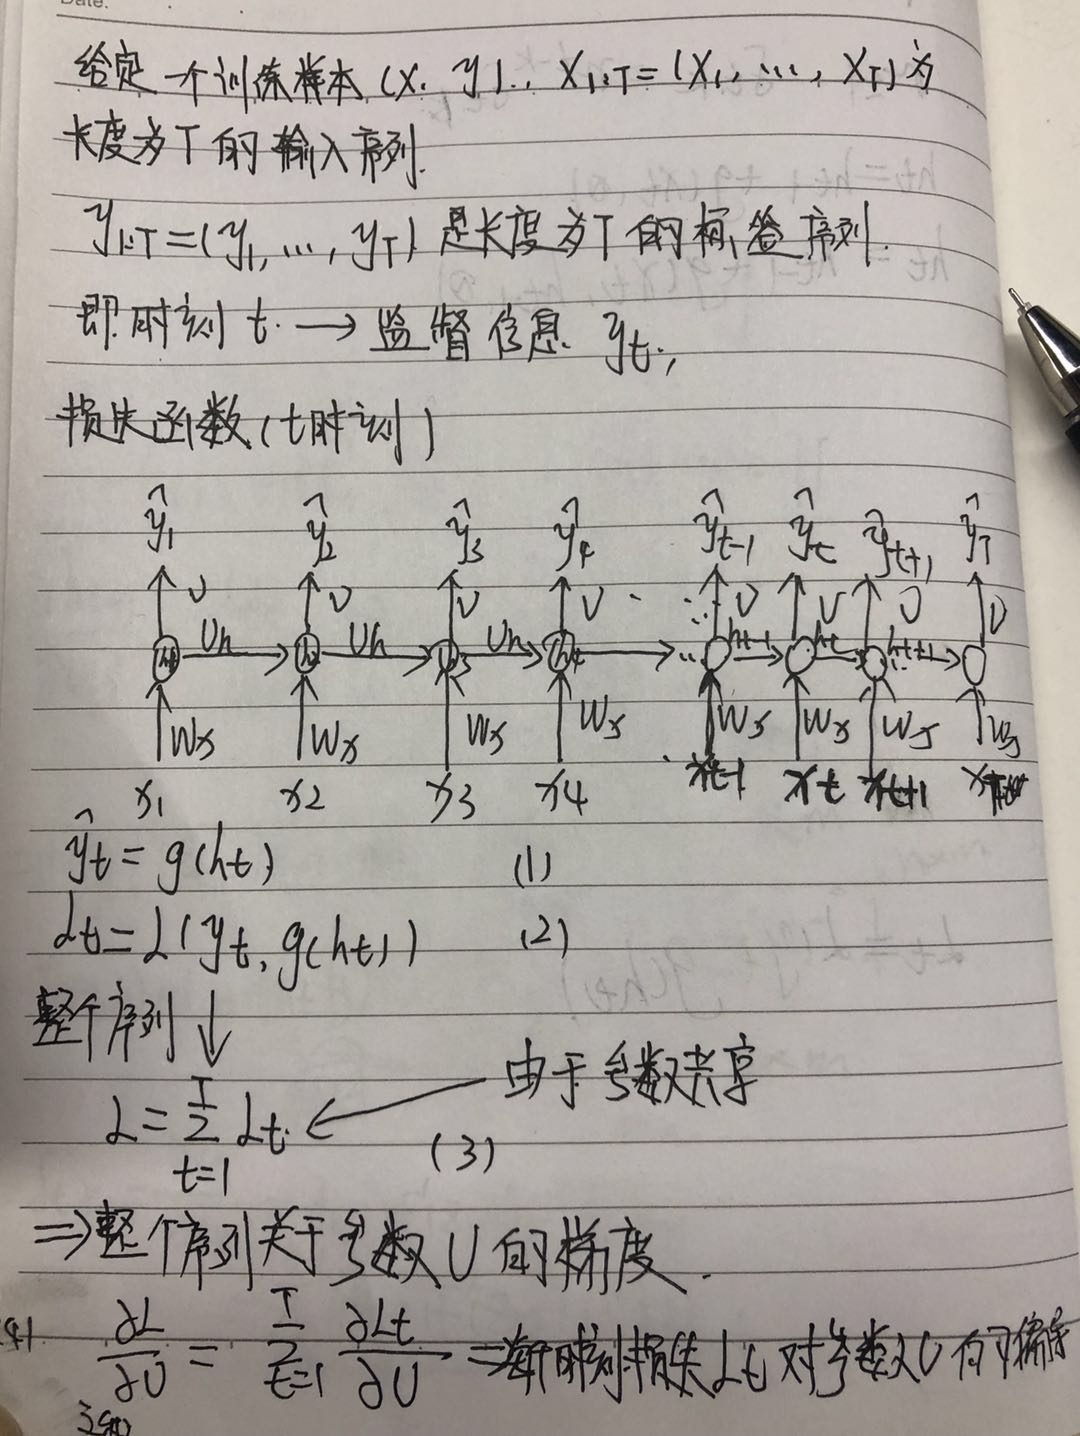 Date:
给定一个训练样本(x, y), X1:T=(X1, ..., XT)为
长度为T的输入序列.
y1:T=(y1, ..., yT) 是长度为T的标签序列.
即时刻 t. → 监督信息 yt,
损失函数(t时刻)
ŷ1 ŷ2 ŷ3 ŷ4 ŷt-1 ŷt ŷt+1 ŷT
V V V V V V V V
Uh Uh Uh ht-1 ht ht+1
Wx Wx Wx Wx Wx Wx Wx Wx
x1 x2 x3 x4 xt-1 xt xt+1
ŷt = g(ht) (1)
Lt = L(yt, g(ht)) (2)
整个序列 ↓
由于参数共享
L = Σ_{t=1}^{T} Lt ← (3)
⇒ 整个序列关于参数 U 的梯度.
∂L/∂U = Σ_{t=1}^{T} ∂Lt/∂U ⇒ 每个时刻损失 Lt 对参数 U 的偏导